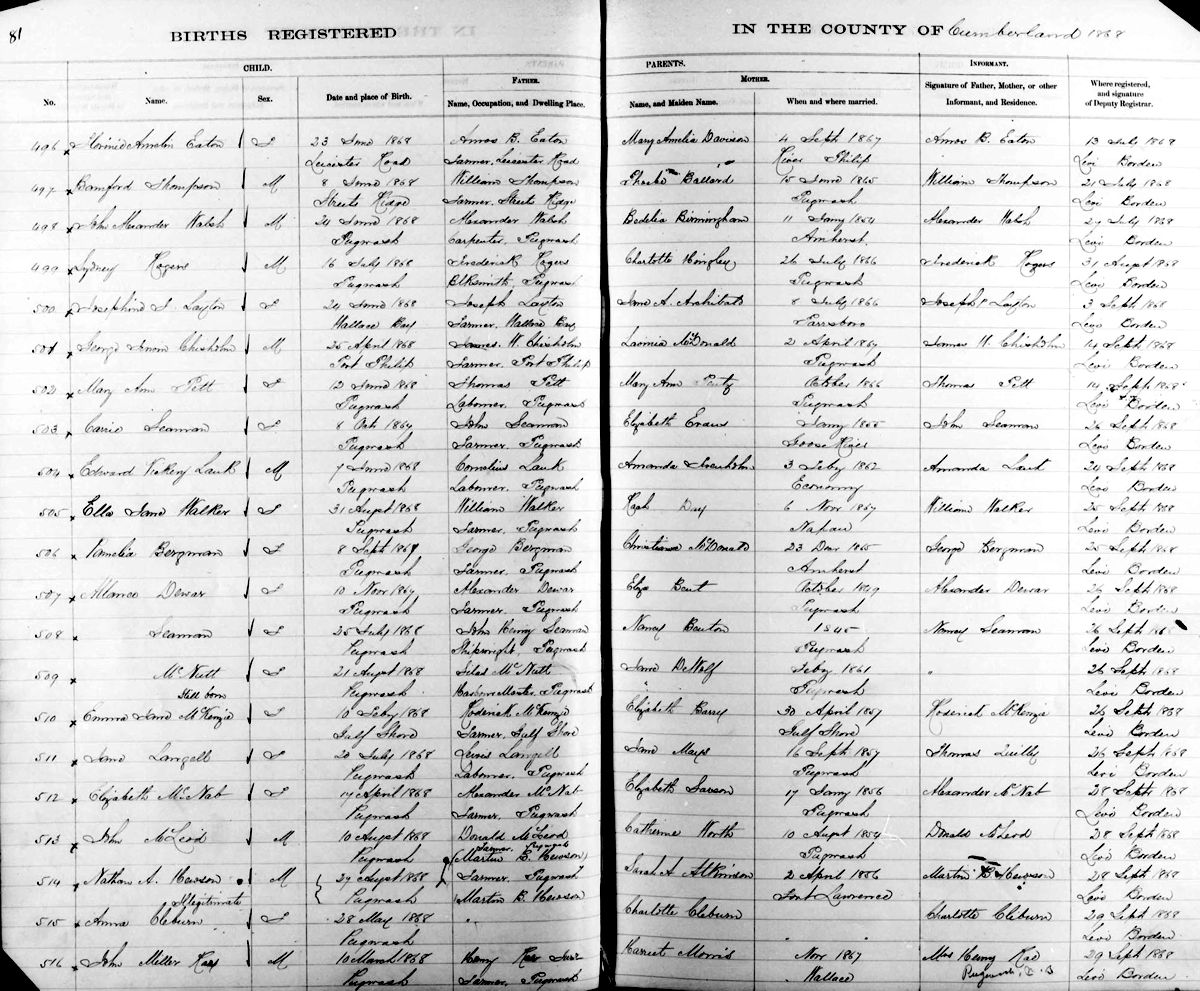 81
BIRTHS REGISTERED IN THE COUNTY OF Cumberland 1868
CHILD. PARENTS. INFORMANT.
FATHER. MOTHER.
No. Name. Sex. Date and place of Birth. Name, Occupation, and Dwelling Place. Name, and Maiden Name. When and where married. Signature of Father, Mother, or other Informant, and Residence. Where registered, and signature of Deputy Registrar.
496 Eaton F 23 June 1868 Amos B. Eaton Mary Amelia Davison 4 Sept 1867 Amos B. Eaton 13 July 1868
Leicester Road Farmer, Leicester Road River Philip Levi Borden
497 Bamford Thompson M 8 June 1868 William Thompson Ballard 15 June 1865 William Thompson 21 July 1868
Streets Ridge Farmer Streets Ridge Pugwash Levi Borden
498 John Alexander Walsh M 24 June 1868 Alexander Walsh Bedelia Birmingham 11 Jany 1854 Alexander Walsh 27 July 1868
Pugwash Carpenter, Pugwash Amherst. Levi Borden
499 Sydney Rogers M 16 July 1868 Frederick Rogers Charlotte Hingley 26 July 1866 Frederick Rogers 31 August 1868
Pugwash Blksmith, Pugwash Pugwash Levi Borden
500 Josephine J. Layton F 24 June 1868 Joseph Layton Jane A. Archibald 8 July 1866 Joseph Layton 3 Sept 1868
Wallace Bay Farmer, Wallace Bay Parrsboro Levi Borden
501 George Chisholm M 25 April 1868 James W. Chisholm McDonald 2 April 1867 James W. Chisholm 14 Sept 1868
Port Philip Farmer, Port Philip Pugwash Levi Borden
502 Mary Ann Pitt F 12 June 1868 Thomas Pitt Mary Ann October 1866 Thomas Pitt 14 Sept 1868
Pugwash Labourer, Pugwash Pugwash Levi Borden
503 Carrie Seaman F 8 Oct 1867 John Seaman Elizabeth Evans Jany 1855 John Seaman 26 Sept 1868
Pugwash Farmer, Pugwash Goose River Levi Borden
504 Edward Vickery M 7 June 1868 Cornelius Amanda 3 Feby 1862 Amanda 24 Sept 1868
Pugwash Labourer, Pugwash Economy Levi Borden
505 Ella Jane Walker F 31 August 1868 William Walker Day 6 Novr 1857 William Walker 25 Sept 1868
Pugwash Farmer, Pugwash Napan Levi Borden
506 Pamelia Bergman F 8 Sept 1867 George Bergman Christianna McDonald 23 Decr 1865 George Bergman 25 Sept 1868
Pugwash Farmer, Pugwash Amherst Levi Borden
507 Dewar F 10 Novr 1867 Alexander Dewar Eliza Bent October 1849 Alexander Dewar 26 Sept 1868
Pugwash Farmer, Pugwash Pugwash Levi Borden
508 Seaman F 25 July 1868 John Henry Seaman Nancy Benton 1845 Nancy Seaman 26 Sept 1868
Pugwash Shipwright, Pugwash Pugwash Levi Borden
509 McNutt F 21 August 1868 Silas McNutt Jane DeWolf Feby 1861 " 26 Sept 1868
Still born Pugwash Harbour Master, Pugwash Pugwash Levi Borden
510 Emma Jane McKenzie F 10 Feby 1868 Roderick McKenzie Elizabeth 30 April 1857 Roderick McKenzie 26 Sept 1868
Gulf Shore Farmer, Gulf Shore Gulf Shore Levi Borden
511 Jane Langell F 20 July 1868 Lewis Langell Jane Mays 16 Sept 1857 Thomas 26 Sept 1868
Pugwash Labourer, Pugwash Pugwash Levi Borden
512 Elizabeth McNab F 17 April 1868 Alexander McNab Elizabeth 17 Jany 1856 Alexander McNab 28 Sept 1868
Pugwash Farmer, Pugwash Pugwash Levi Borden
513 John McLeod M 10 August 1868 Donald McLeod Catherine North 10 August 1854 Donald McLeod 28 Sept 1868
Pugwash Farmer, Pugwash Pugwash Levi Borden
(Martin B. Hewson)
514 Nathan A. Hewson M 27 August 1868 Farmer, Pugwash Sarah A Atkinson 2 April 1856 Martin B Hewson 28 Sept 1868
Illegitimate Pugwash Martin B. Hewson Fort Lawrence Levi Borden
515 Anna Cleburn F 28 May 1868 " Charlotte Cleburn Charlotte Cleburn 29 Sept 1868
Pugwash Levi Borden
516 John Miller M 10 March 1868 Henry Harriet Morris Novr 1867 Mrs Henry 29 Sept 1868
Pugwash Farmer, Pugwash Wallace Pugwash, Levi Borden